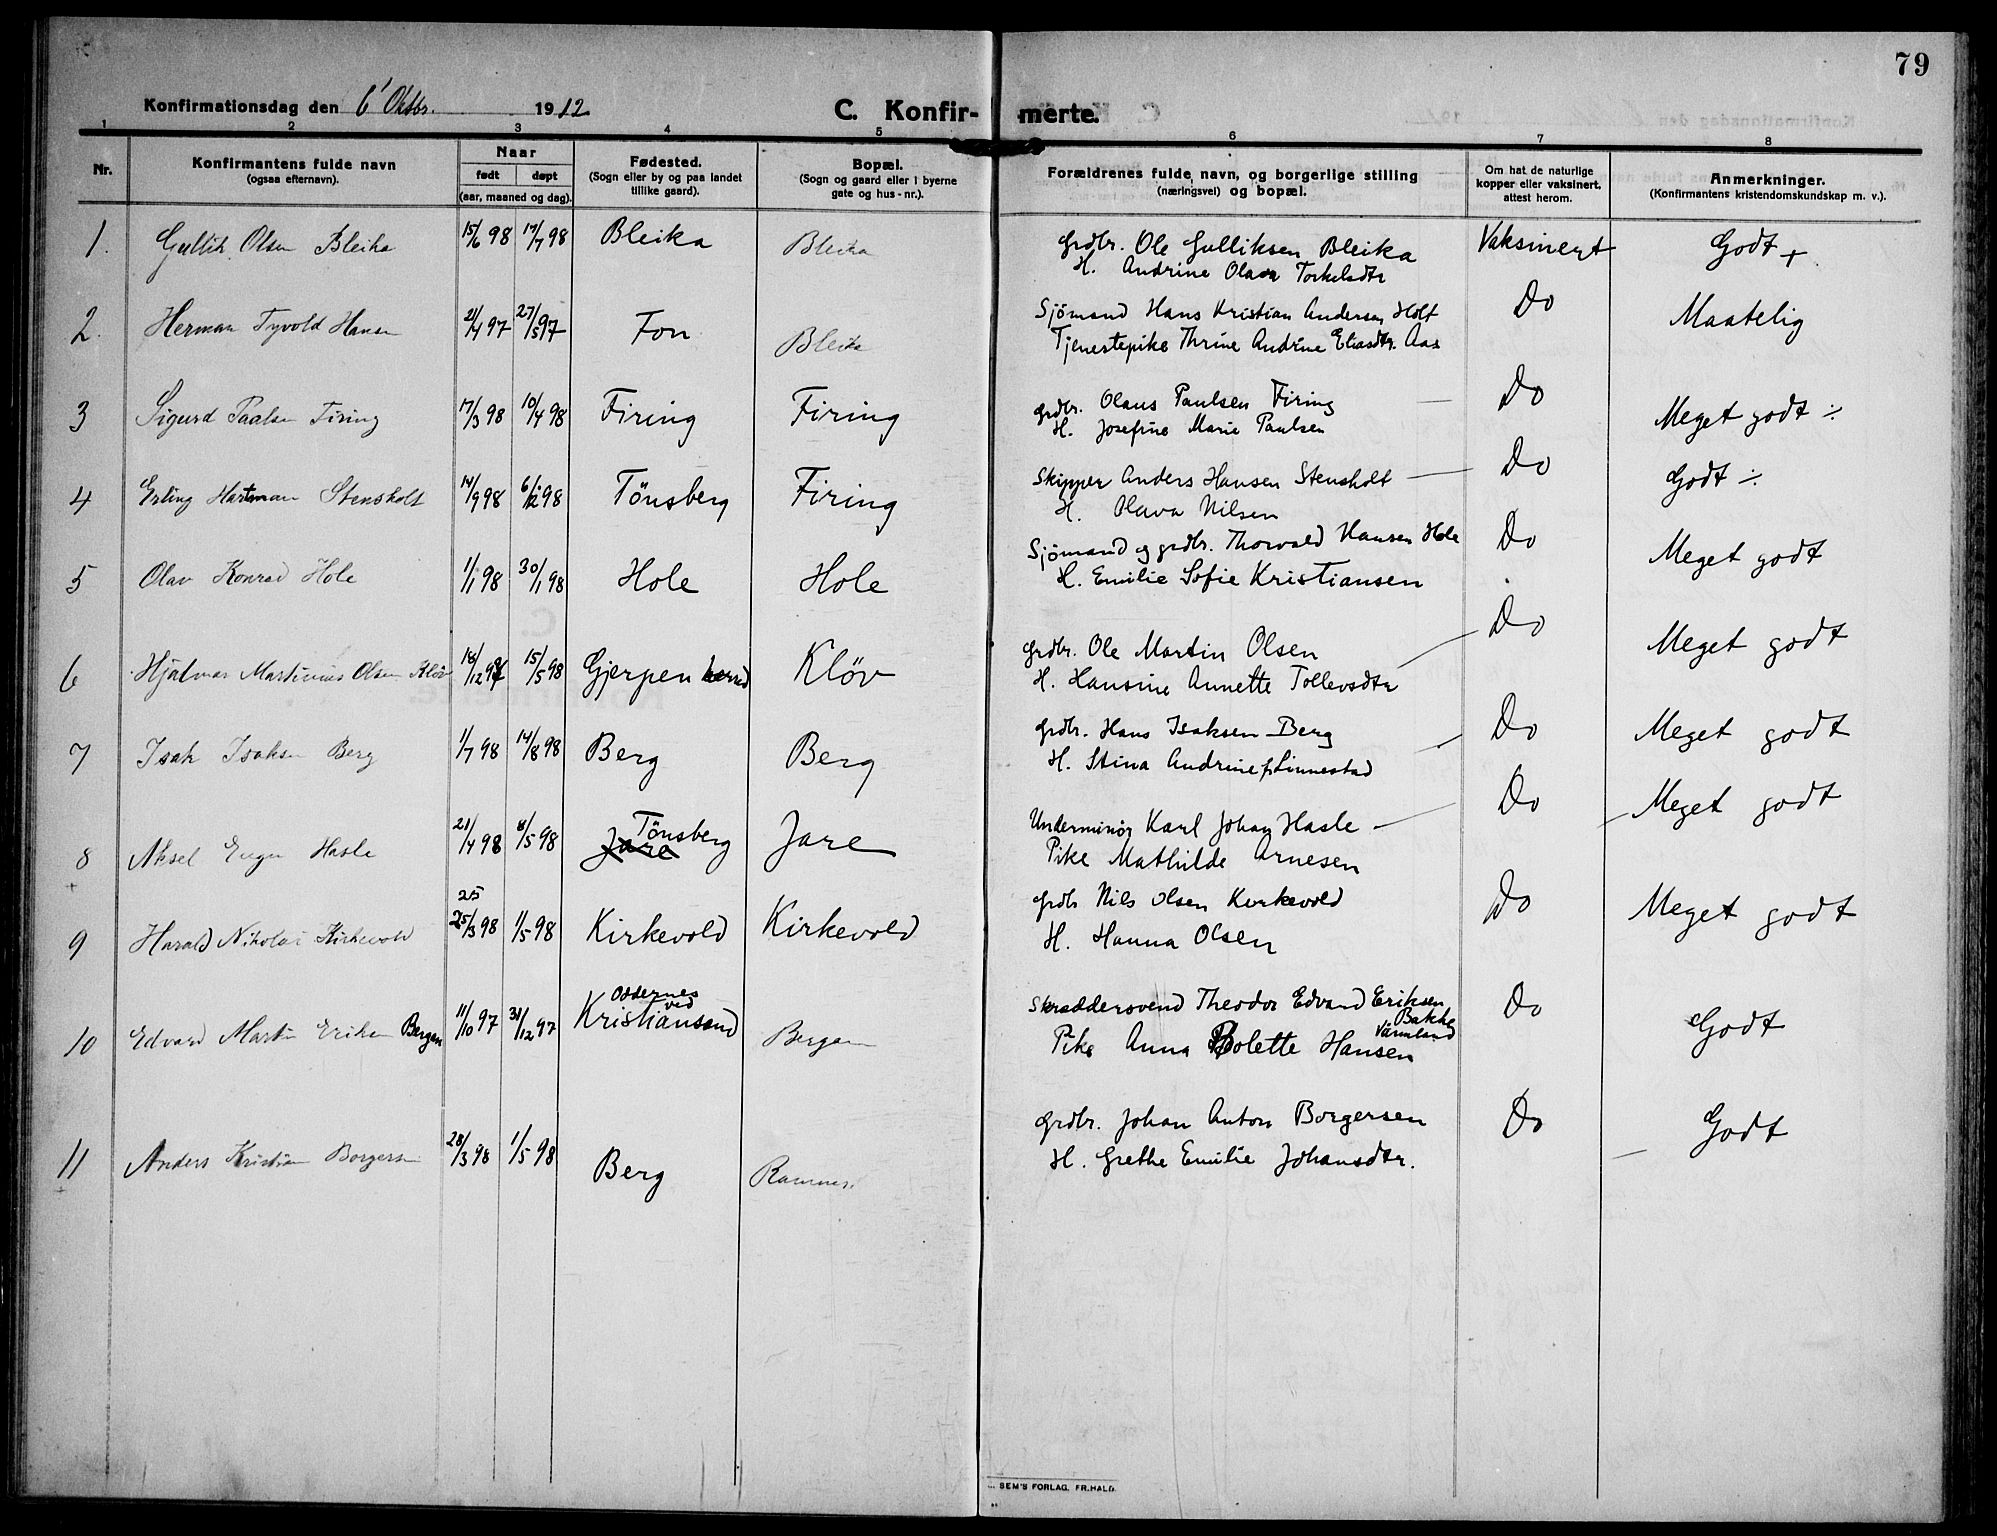 79
Konfirmationsdag den 6' Oktbr. 1912
C. Konfir-merte.
1 2 3 4 5 6 7 8
Nr.
Konfirmantens fulde navn
(ogsaa efternavn).
Naar
født døpt
(aar, maaned og dag).
Fødested.
(Sogn eller by og paa landet
tillike gaard).
Bopæl.
(Sogn og gaard eller i byerne
gate og hus-nr.).
Forældrenes fulde navn, og borgerlige stilling
(næringsvei) og bopæl.
Om hat de naturlige
kopper eller vaksinert,
attest herom.
Anmerkninger.
(Konfirmantens kristendomskundskap m. v.).
1. Gullik Olsen Bleika 15/6 98 17/7 98 Bleika Bleika Grdbr. Ole Gulliksen Bleika Vaksinert Godt +
H. Andrine Olava Torkelsdtr
2. Herman Tyvold Hansen 21/4 97 27/5 97 Fon Bleika Sjömand Hans Kristian Andersen Holt Do Maatelig
Tjenestepike Thrine Andrine Eliasdtr. Aas
3 Sigurd Paalsen Firing 17/3 98 10/4 98 Firing Firing Grdbr. Olaus Paulsen Firing Do Meget godt ÷
H. Josefine Marie Paulsen
4 Erling Hartman Stensholt 14/9 98 6/12 98 Tönsberg Firing Skipper Anders Hansen Stensholt Do Godt ÷
H. Olava Nilsen
5 Olav Konrad Hole 1/1 98 30/1 98 Hole Hole Sjömand og grdbr. Thorvald Hansen Hole Do Meget godt
H. Emilie Sofie Kristiansen
6 Hjalmar Martinius Olsen Kløv 18/12 97 15/5 98 Gjerpen herred Kløv Grdbr. Ole Martin Olsen Do Meget godt
H. Hansine Annette Tollevsdtr
7 Isak Isaksen Berg 1/7 98 14/8 98 Berg Berg Grdbr. Hans Isaksen Berg Do Meget godt
H. Stina Andrine f. Linnestad
8 Aksel Eugen Hasle 21/4 98 8/5 98 Tönsberg Jare Jare Underminör Karl Johan Hasle Do Meget godt
+ Pike Mathilde Arnesen
25
9 Harald Nikolai Kirkevold 25/3 98 1/5 98 Kirkevold Kirkevold Grdbr Nils Olsen Kirkevold Do Meget godt
H. Hanna Olsen
10 Edvard Martin Eriksen Bergan 11/10 97 31/12 97 Oddernes ved Kristiansand Bergan Skræddersvend Theodor Edvard Eriksen Do Godt
Bakke
Värmland
Pike Anna Bolette Hansen
11 Anders Kristian Borgersen 28/3 98 1/5 98 Berg Ramnes. Grdbr. Johan Anton Borgersen Do Godt
+ H. Grethe Emilie Johansdtr.
SEM'S FORLAG, FR.HALD.